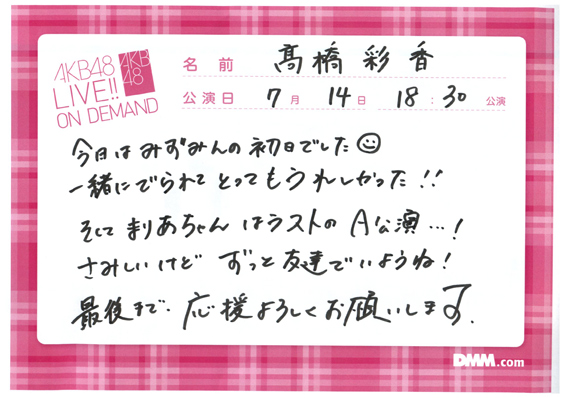 AKB48
LIVE!!
ON DEMAND
AKB
48
名前 髙橋彩香
公演日 7月 14日 18:30 公演
今日はみずみんの初日でした☺
一緒にでられてとってもうれしかった!!
そしてまりあちゃんはラストのA公演…!
さみしいけどずっと友達でいようね!
最後まで応援よろしくお願いします.
DMM.com